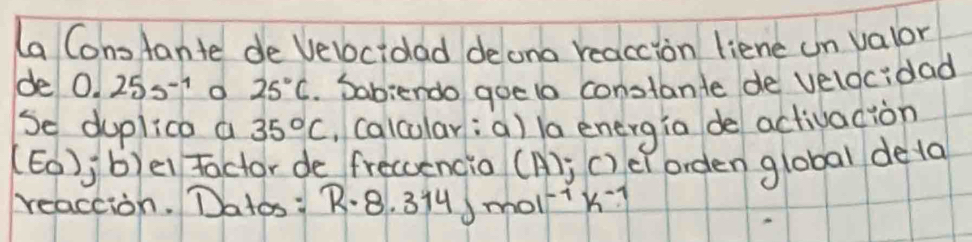 La Constante de Velocidad de una reacción tiene un valor
de 0.25 s⁻¹ a 25°C. Sabiendo que la constante de velocidad
se duplica a 35°C, calcular: a) la energía de activación
(Ea); b) el factor de frecuencia (A); c) el orden global de la
reacción. Datos: R=8.314 J mol⁻¹ K⁻¹